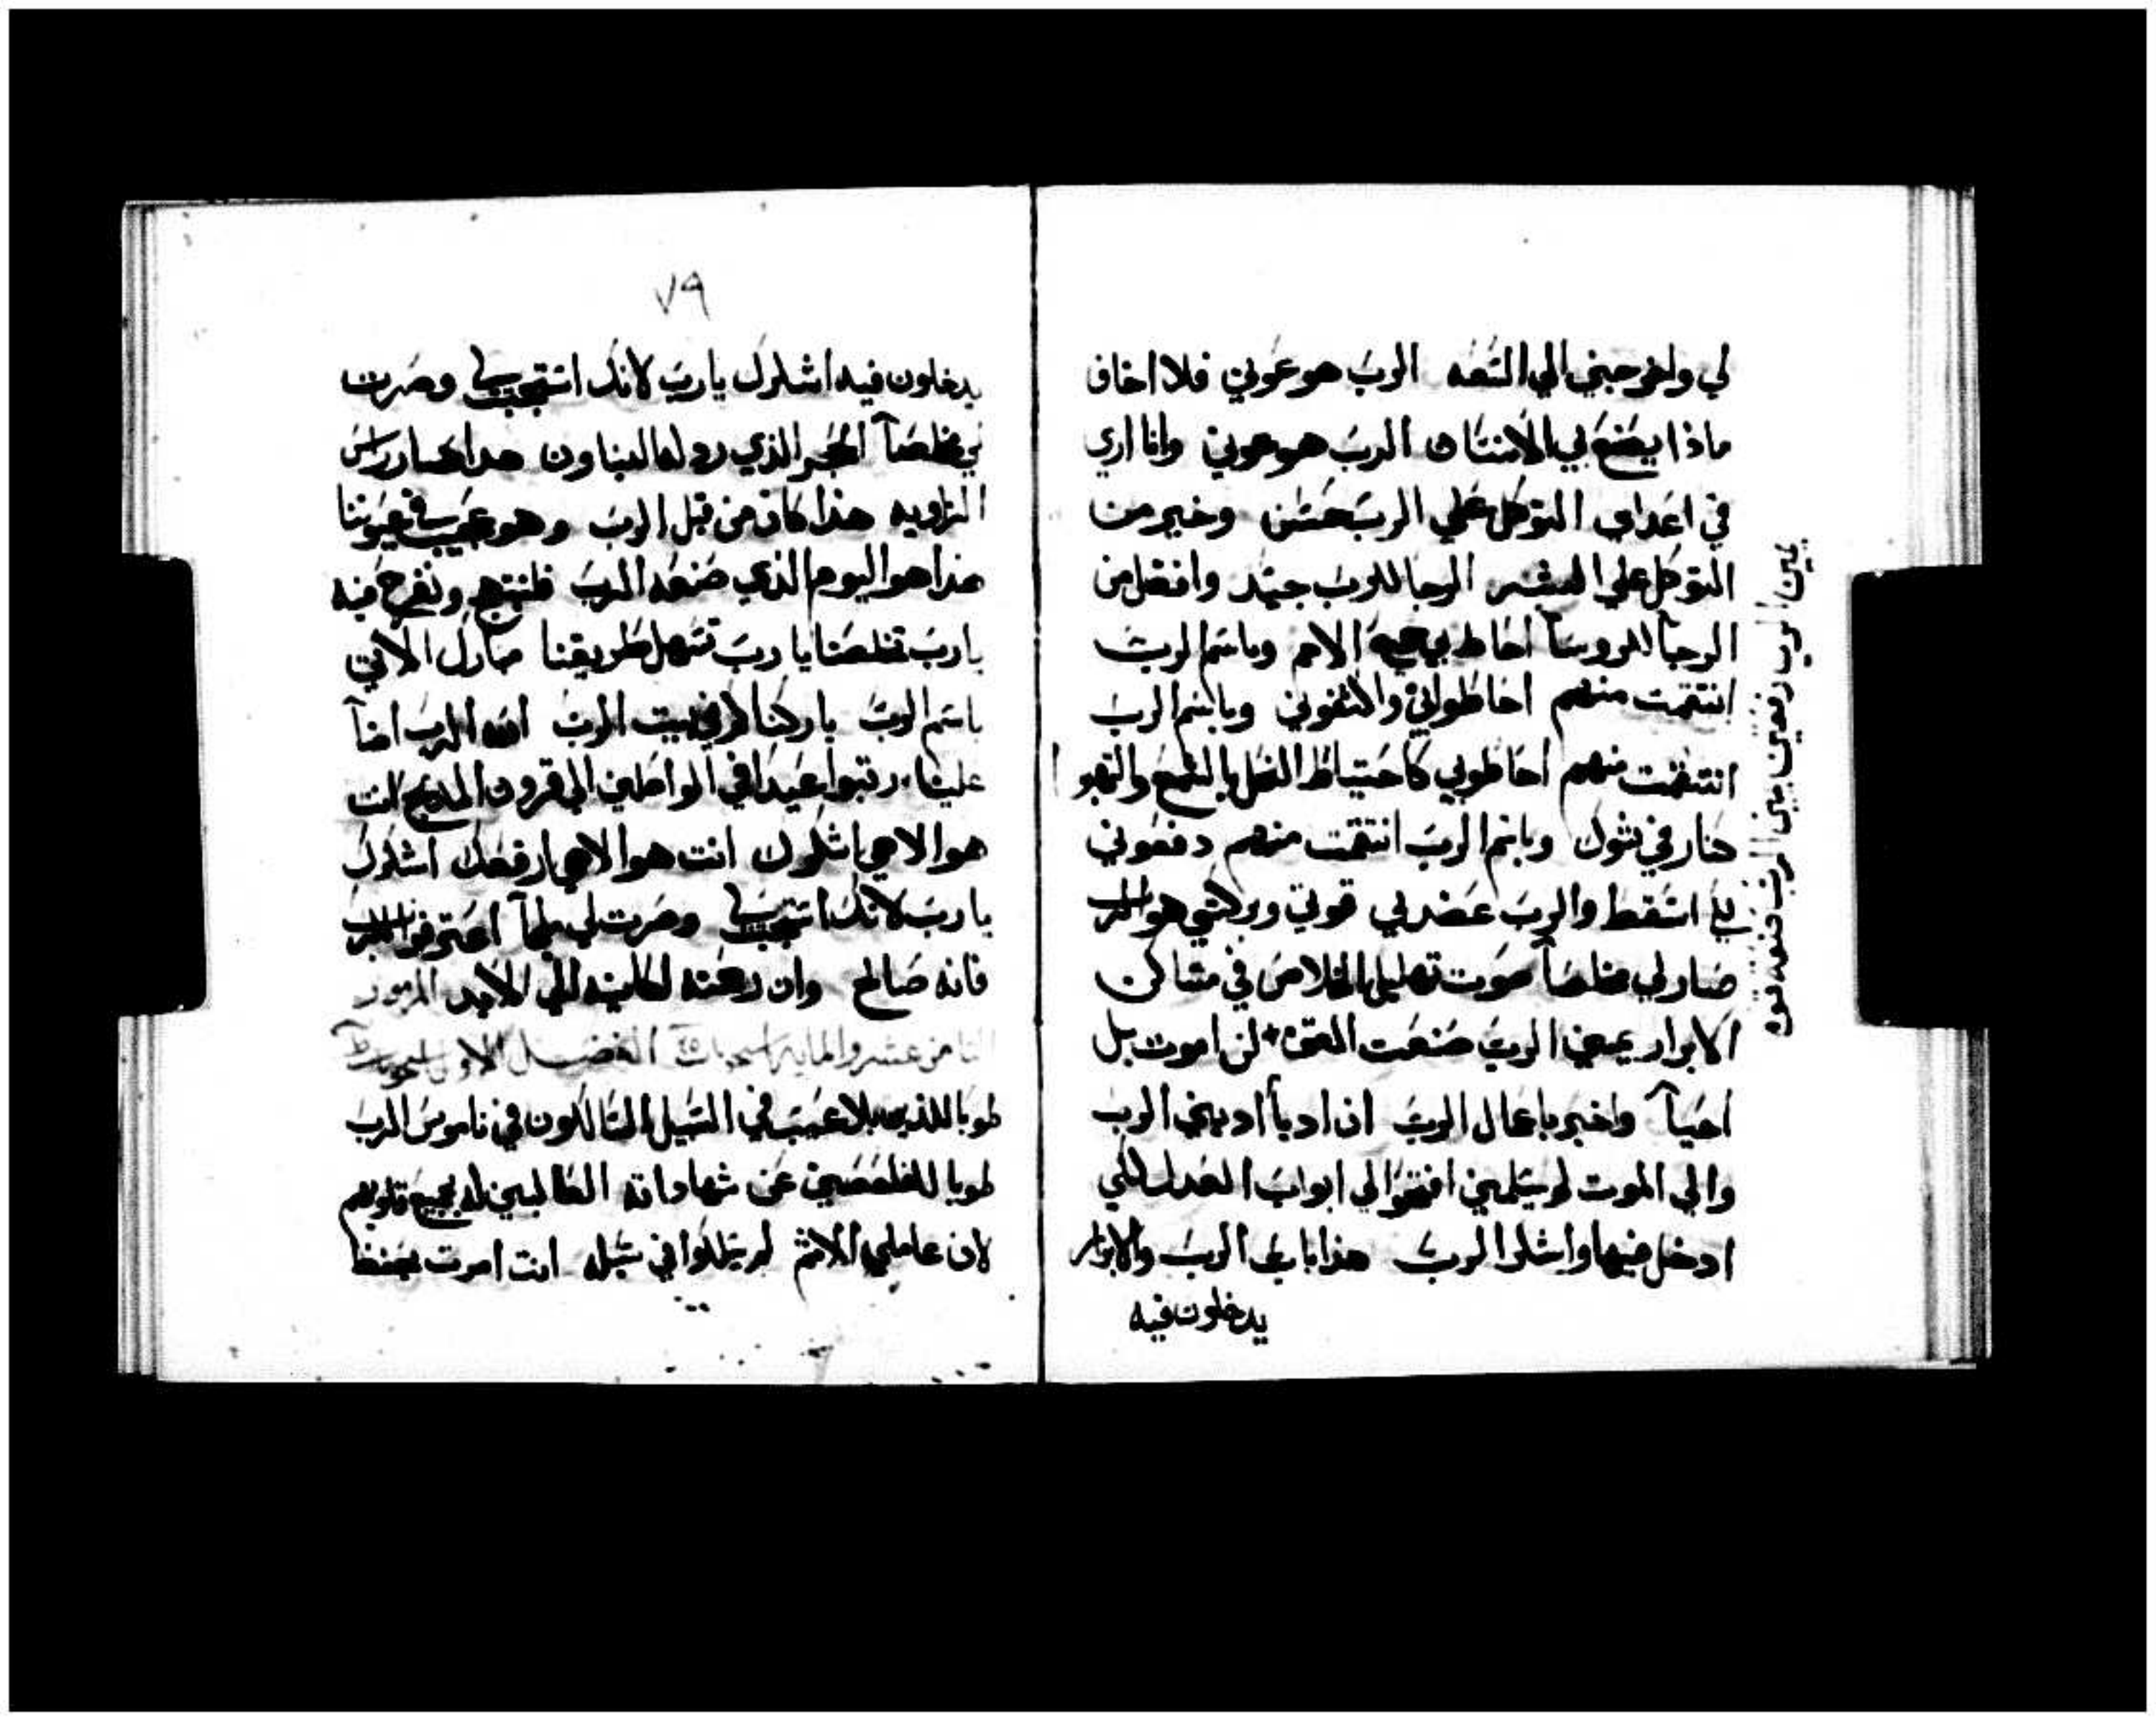 لي واخرجني الي السعه الرب هو عوني فلا اخاف
ماذا يصنع بي الانسان الرب هو عوني وانا اري
في اعداي التوكل علي الرب حسن وخير من
التوكل علي البشر الرجا للرب جيد وافضل من
الرجا للروسا احاط بي جميع الامم وباسم الرب
انتقمت منهم احاطوا بي واكتنفوني وباسم الرب
انتقمت منهم احاطوا بي كاحتياط النحل بالشمع والتهبوا
كنار في شوك وباسم الرب انتقمت منهم دفعوني
لي اسقط والرب عضدني قوتي وبركتي هو الرب
صار لي مخلصاً صوت تهليل الخلاص في مساكن
الابرار يمين الرب صنعت القوه لن اموت بل
احياً واخبر باعمال الرب ان ادباً ادبني الرب
والي الموت لم يسلمني افتحوا لي ابواب العدل لكي
ادخل فيها واشكر الرب هذا باب الرب والابرار
يدخلون فيه
يمين الرب رفعتني يمين الرب صنعت قوه
٧٩
يدخلون فيه اشكرك يا رب لانك استجبت لي وصرت
لي مخلصاً الحجر الذي رذله البناون هذا صار راس
الزاويه هذا كان من قبل الرب وهو عجيب في عيوننا
هذا هو اليوم الذي صنعه الرب فلنبتهج ونفرح فيه
يا رب تخلصنا يا رب تسهل طريقنا مبارك الاتي
باسم الرب باركناكم في بيت الرب الله الرب اضآ
علينا رتبوا عيدا في الواصلين الي قرون المذبح انت
هو الاهي اشكرك انت هو الاهي ارفعك اشكرك
يا رب لانك استجبت لي وصرت لي مخلصاً اعترفوا للرب
فانه صالح وان رحمته كاينه الي الابد المزمور
الثامن عشر والمايه الفصل الاول
طوبا للذين بلا عيب في السبيل السالكون في ناموس الرب
طوبا للفاحصين عن شهاداته الطالبين له بجميع قلوبهم
لان عاملي الاثم لم يسلكوا في سبله انت امرت بحفظ